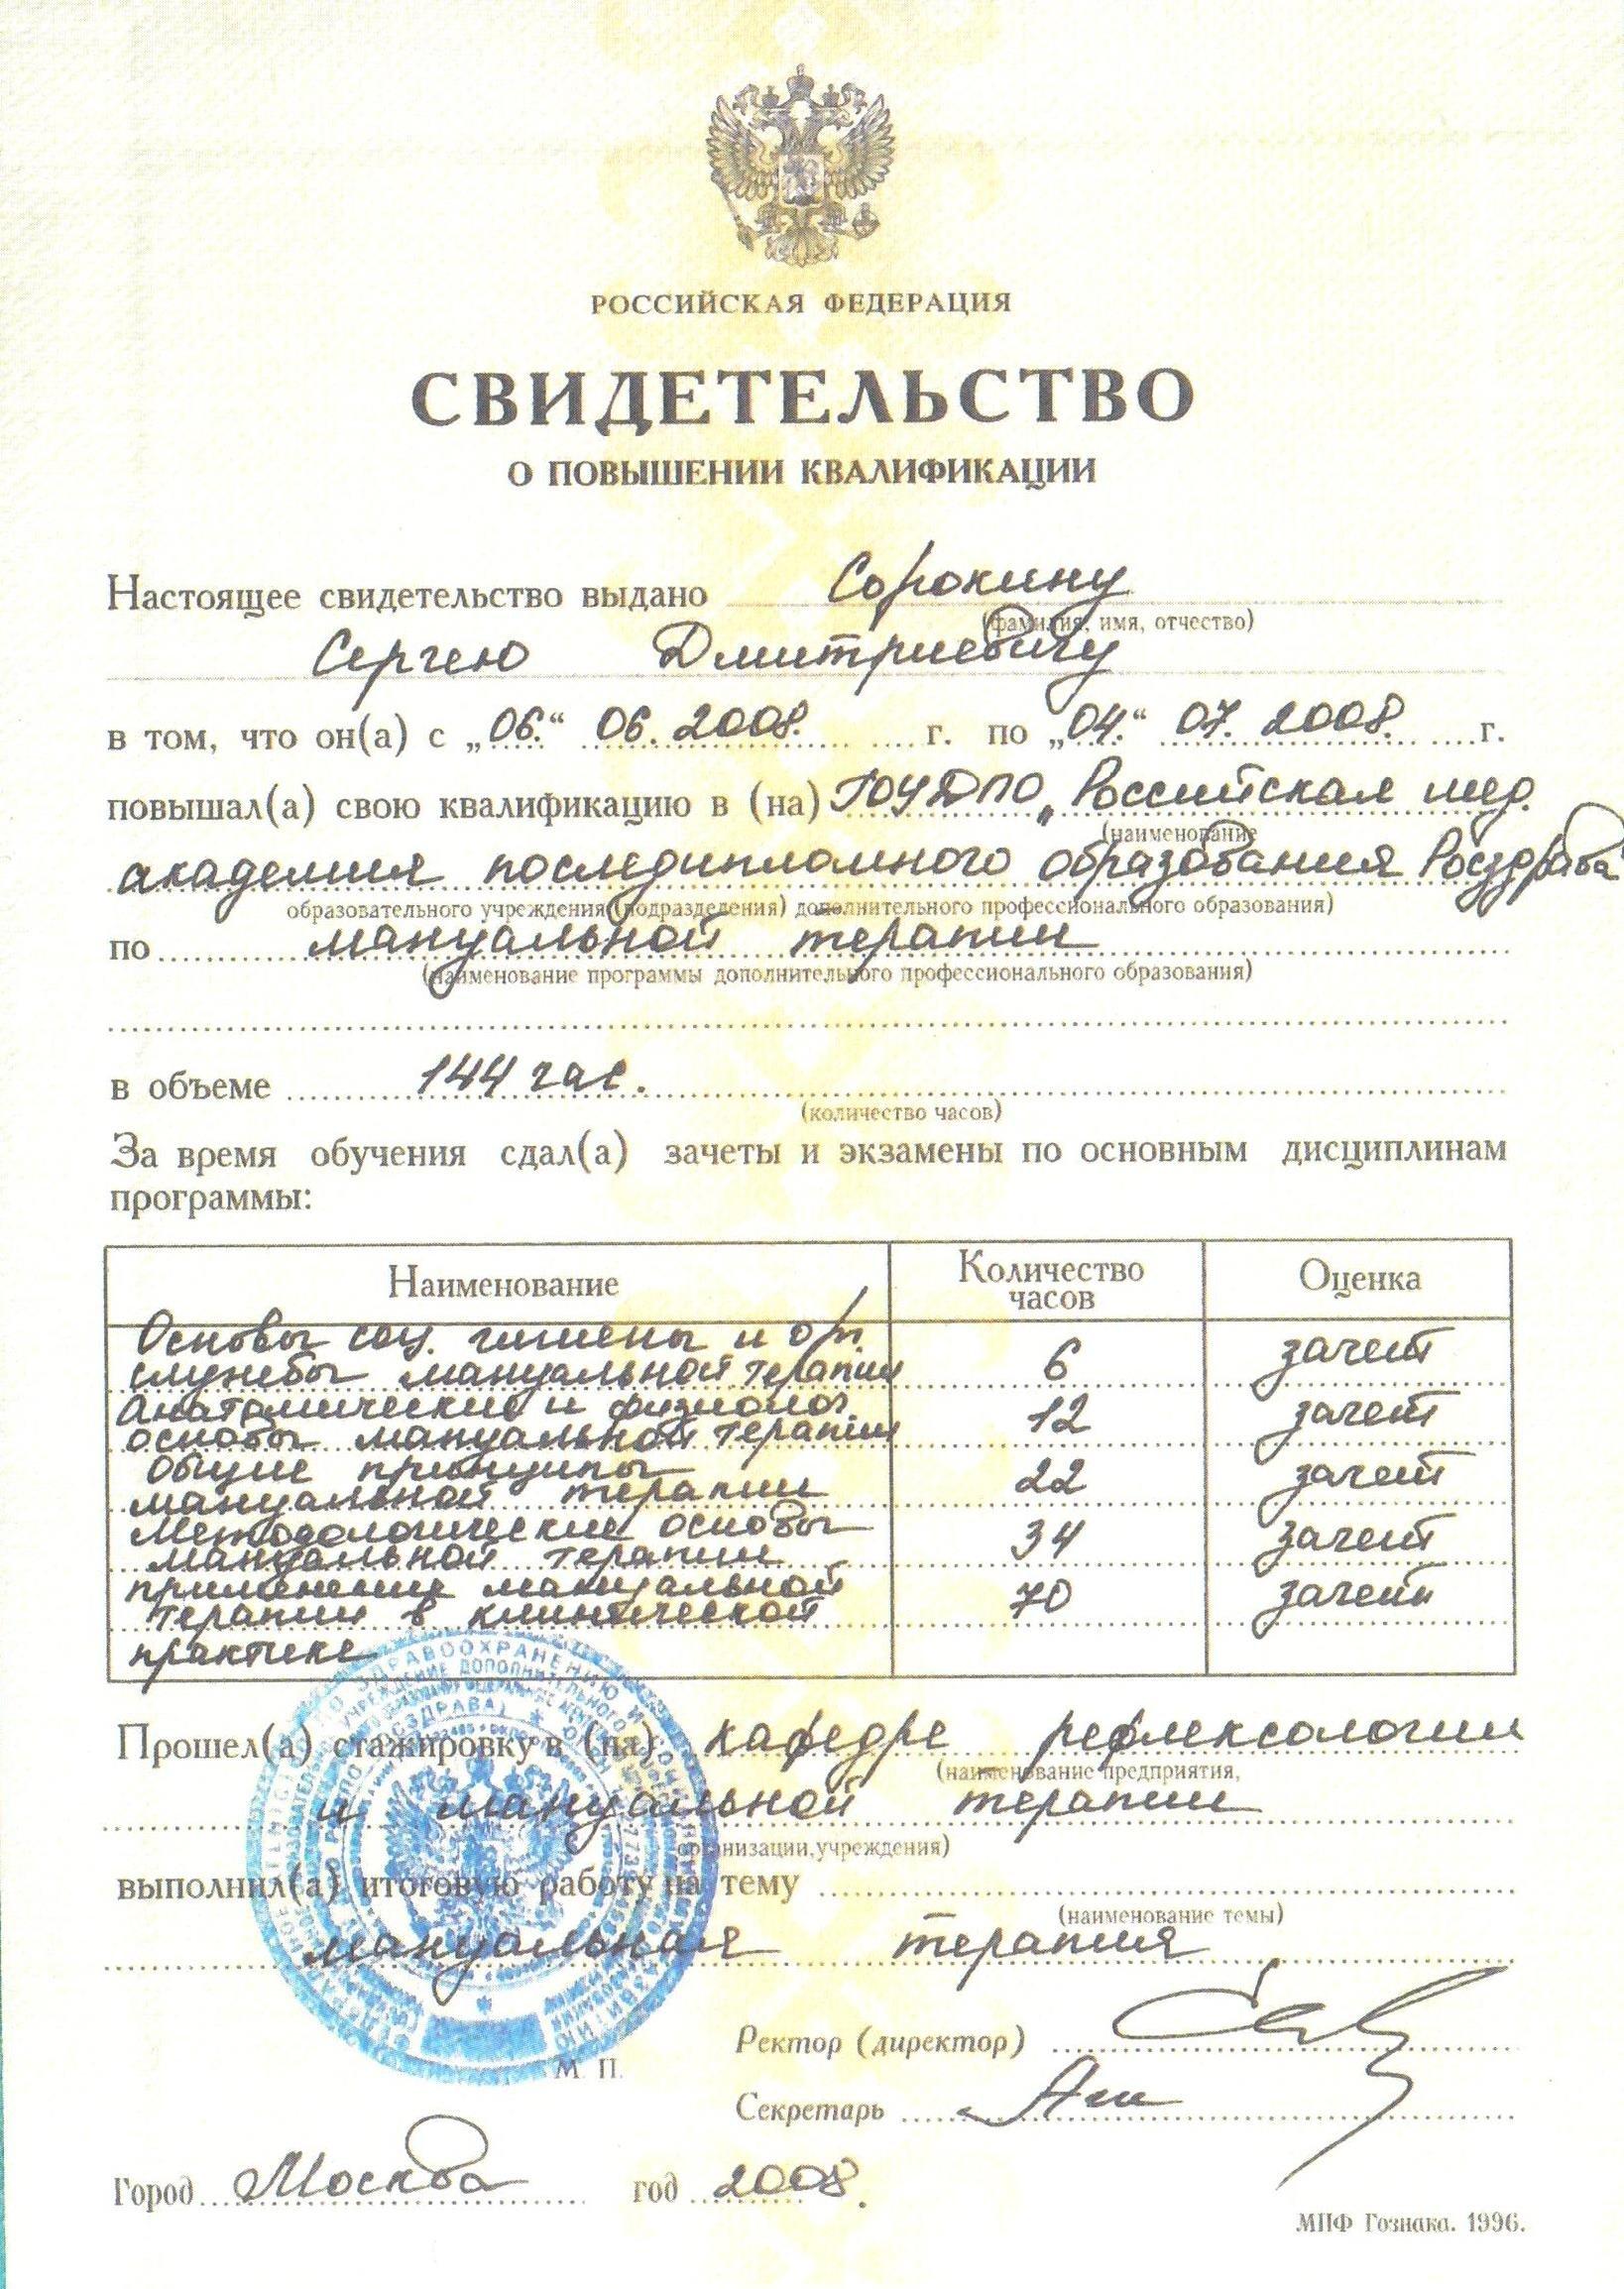 РОССИЙСКАЯ ФЕДЕРАЦИЯ
СВИДЕТЕЛЬСТВО
О ПОВЫШЕНИИ КВАЛИФИКАЦИИ
Настоящее свидетельство выдано Сорокину
(фамилия, имя, отчество)
Сергею Дмитриевичу
в том, что он(а) с „06.“ 06. 2008. г. по „04.“ 07. 2008. г.
повышал(а) свою квалификацию в (на) ГОУДПО „Российская мед.
(наименование
академия последипломного образования Росздрава
образовательного учреждения (подразделения) дополнительного профессионального образования)
по мануальной терапии
(наименование программы дополнительного профессионального образования)
в объеме 144 час.
(количество часов)
За время обучения сдал(а) зачеты и экзамены по основным дисциплинам
программы:
Наименование Количество часов Оценка
Основы соц. гигиены и орг.
службы мануальной терапии 6 зачет
Анатомические и физиолог.
основы мануальной терапии 12 зачет
Общие принципы
мануальной терапии 22 зачет
Методологические основы
мануальной терапии 34 зачет
применение мануальной
терапии в клинической 70 зачет
практике
Прошел(а) стажировку в (на) кафедре рефлексологии
(наименование предприятия,
и мануальной терапии
организации, учреждения)
выполнил(а) итоговую работу на тему
(наименование темы)
мануальная терапия
Ректор (директор)
М. П.
Секретарь
Город Москва год 2008.
МПФ Гознака. 1996.